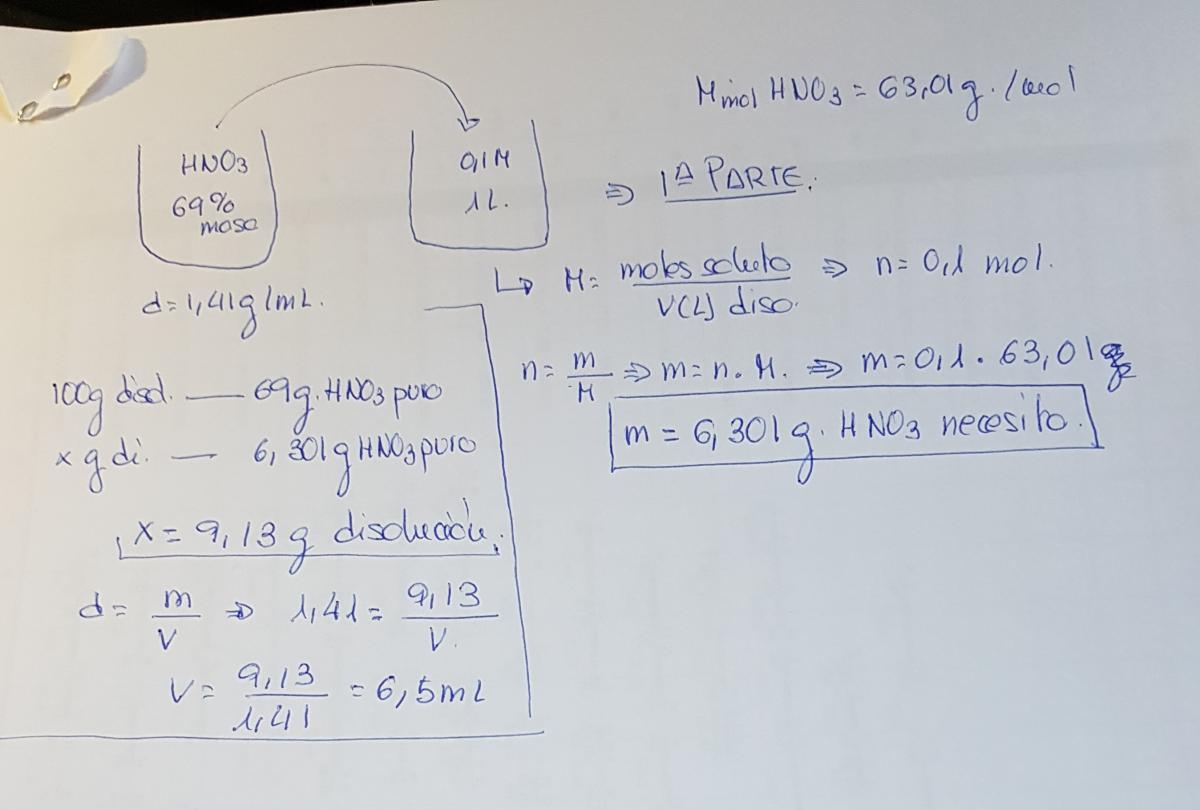 Mmol HNO3 = 63,01 g. / mol
HNO3
69%
masa
d = 1,41 g/mL.
0,1 M
1 L.
⇒ 1ª PARTE.
↳ M = moles soluto / V(L) diso. ⇒ n = 0,1 mol.
n = m / M ⇒ m = n . M. ⇒ m = 0,1 . 63,01 g
m = 6,301 g. HNO3 necesito.
100g disol. — 69 g. HNO3 puro
x g di. — 6,301 g HNO3 puro
x = 9,13 g disolución.
d = m / V ⇒ 1,41 = 9,13 / V.
V = 9,13 / 1,41 = 6,5 mL